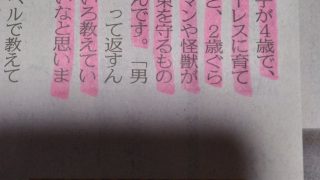 子が４歳で、
ーレスに育て
と、２歳ぐら
マンや怪獣が
束を守るもの
んです。「男
って返すん
いろ教えてい
いなと思いま
ベルで教えて